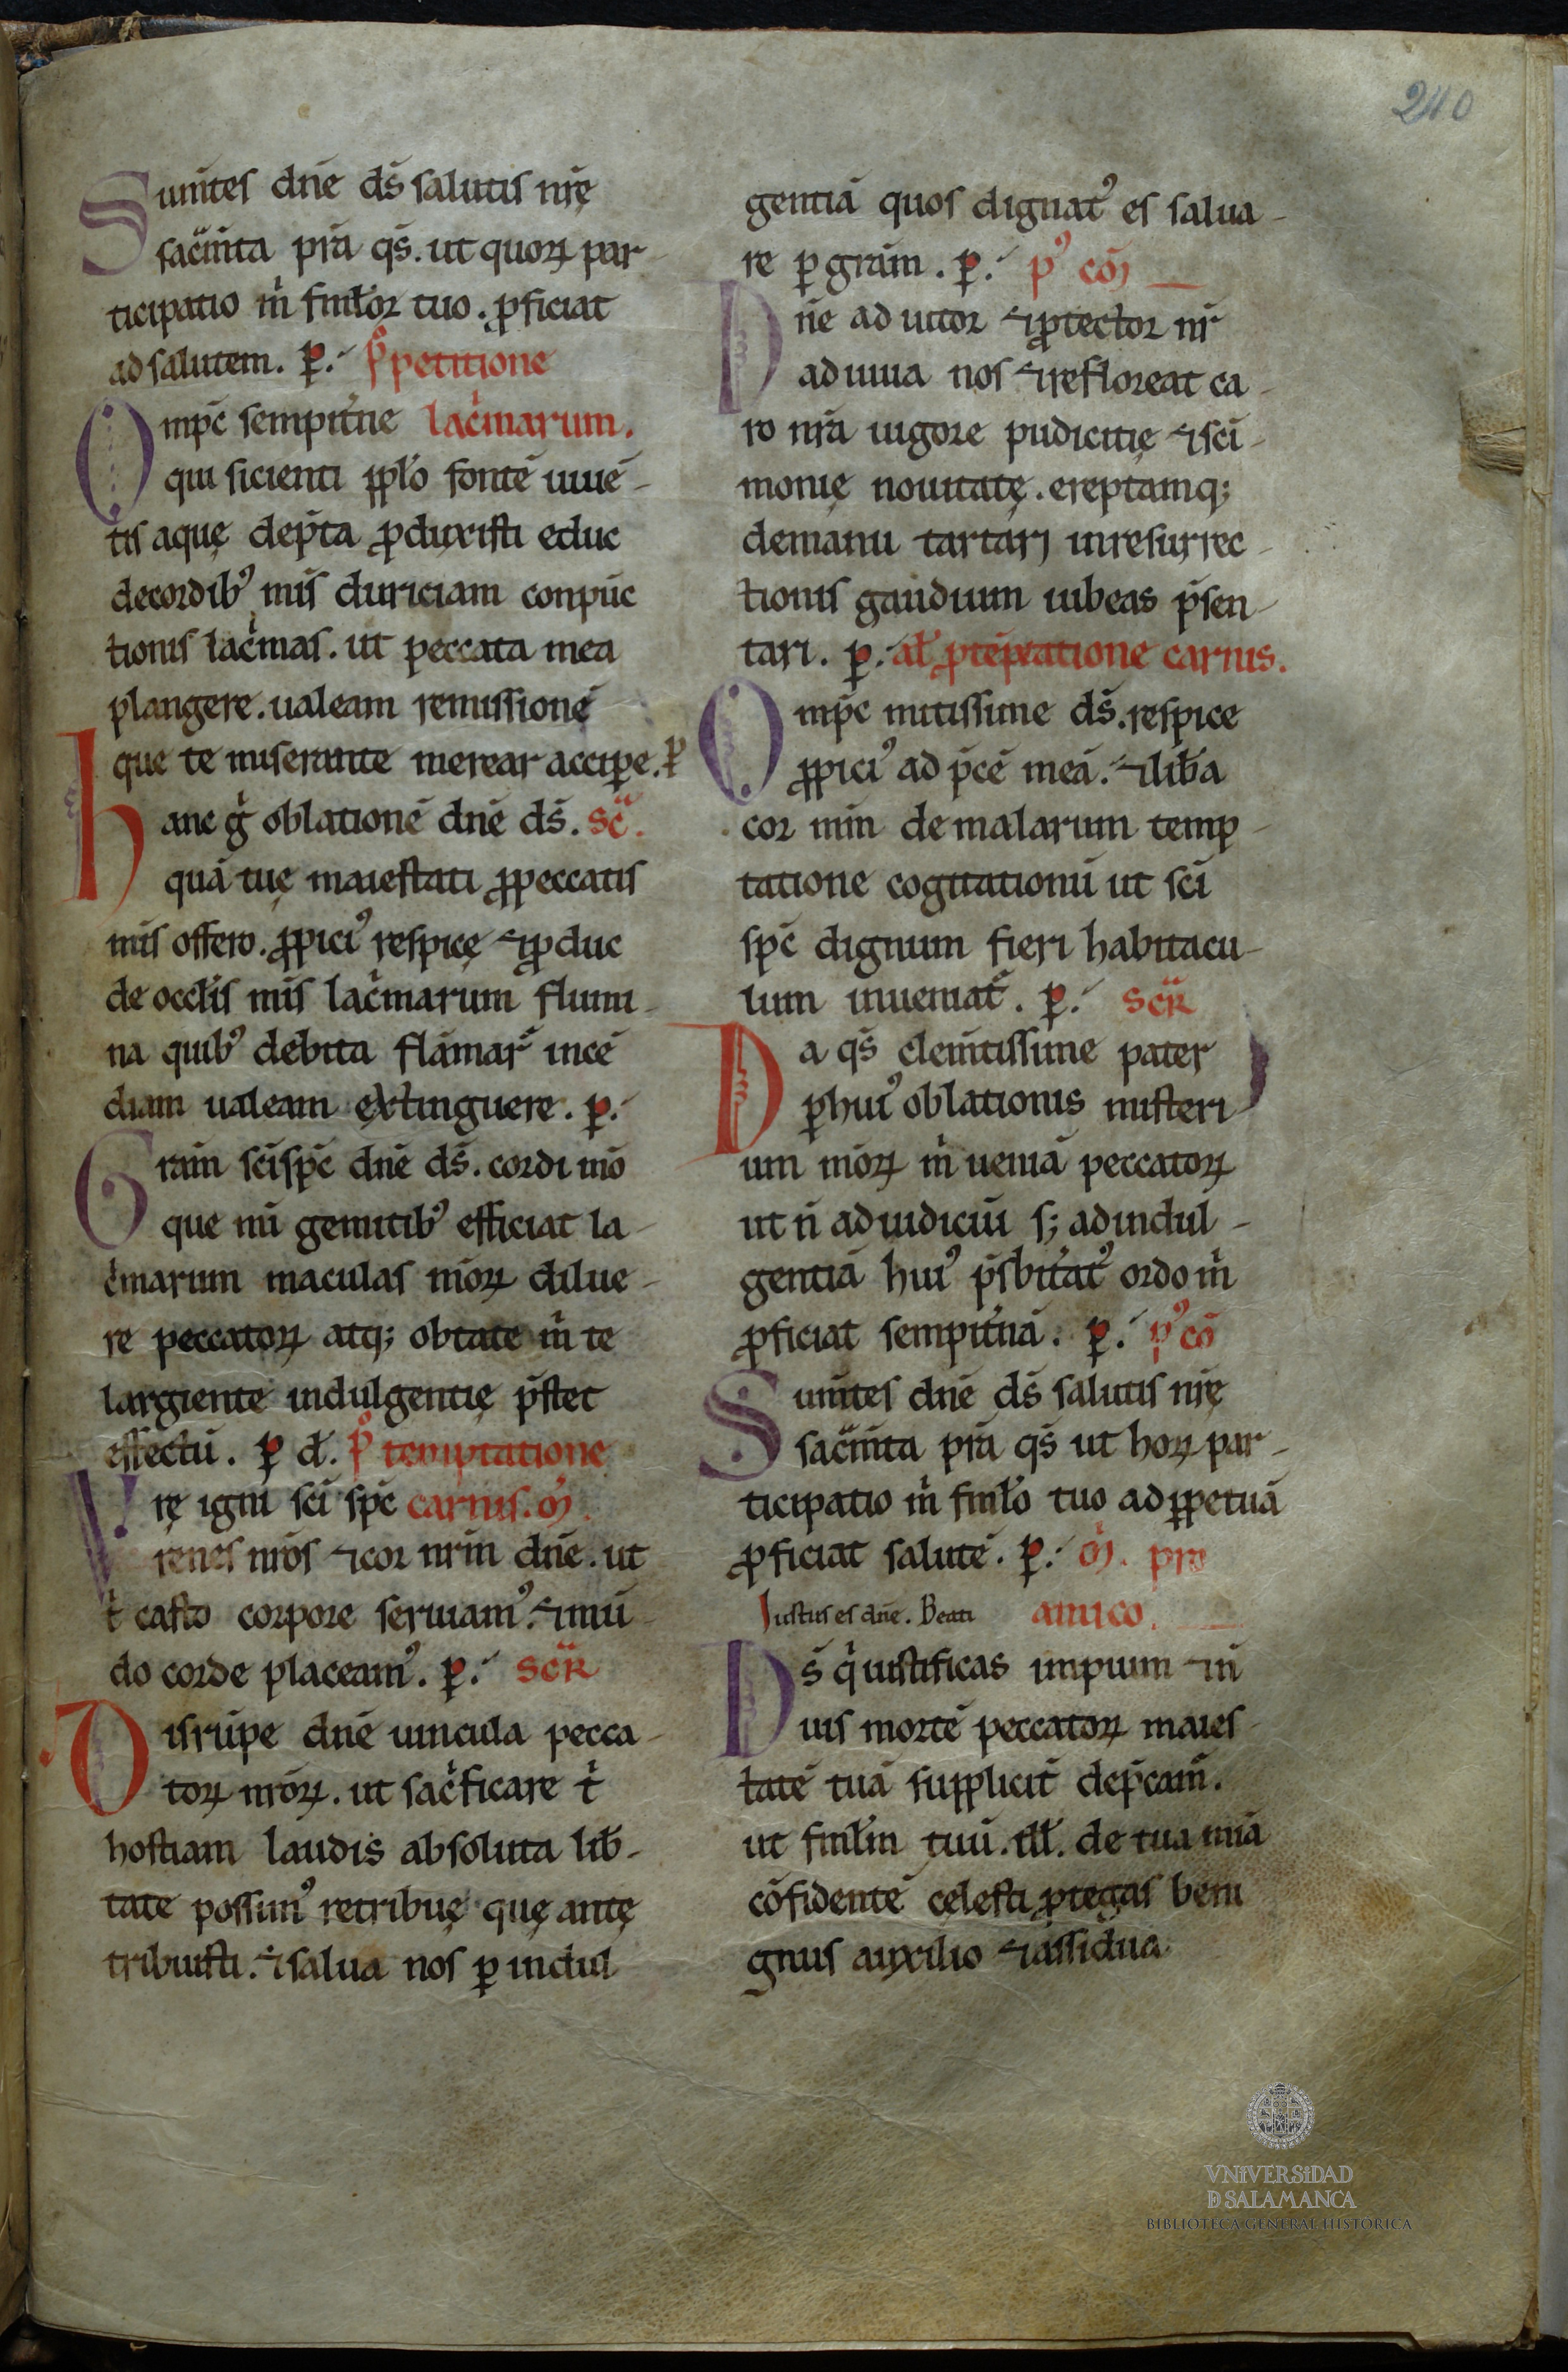 240
Sum̄tes dn̄e ds̄ salutis nr̄ę
sac̄m̄ta pr̄a qs̄. ut quoꝝ par-
ticipatio m̍ fml̄or tuo. ꝓficiat
ad salutem. ꝑ. ꝓ petitione
Omp̄c sempit̄ne lac̍marum.
qui sicienti ppl̄o fontē uiuē-
tis aquę dep̄ta ꝓduxisti educ
decordibꝰ mīs duriciam conpūc
tionis lac̍mas. ut peccata mea
plangere. ualeam remissionē
que te miserante merear acciꝑe. ꝑ
hanc g̍ oblationē dn̄e ds̄. sc̄.
quā tuę maiestati ꝓ peccatis
mīs offero. ꝓpiciꝰ respicę ⁊ ꝓduc
de occl̄is mīs lac̍marum flumi-
na quibꝰ debita flāmaꝝ incē
diam ualeam extinguere. ꝑ.
Gram̄ sc̄i sp̄c dn̄e ds̄. cordi mō
que nū gemitibꝰ efficiat la-
c̍marum maculas mōꝝ dilue-
re peccatoꝝ atq; obtate m̍ te
largiente indulgentię p̄stet
effectū. ꝑ d̄. ꝓ temptatione
Vrę igni sc̄i sp̄c carnis. oꝝ̄.
renes nr̄os ⁊ cor nr̄m dn̄e. ut
t̍ casto corpore seruiamꝰ. ⁊ mū-
do corde placeamꝰ. ꝑ. scr̄
Disrūpe dn̄e uincula pecca-
toꝝ nr̄oꝝ. ut sac̍ficare t̍
hostiam laudis absoluta lib̄-
tate possimꝰ retribuę quę antę
tribuisti. ⁊ salua nos ꝑ indul
gentiā quos dignatꝰ es salua-
re ꝑ gram̄. ꝑ. pꝰ cō
Dn̄e adiutor ⁊ ꝓtector nr̄
adiuua nos ⁊ refloreat ca-
ro nr̄a uigore pudicitię ⁊ sc̄i-
monię nouitatę. ereptamq;
demanu tartari inresurrec-
tionis gaudium iubeas p̄sen-
tari. ꝑ. al̄ ꝓ tēptatione carnis.
Omp̄c mitissime ds̄. respice
ꝓpiciꝰ ad p̄cē meā. ⁊ lib̄a
cor mm̄ de malarum temp-
tatione cogitationū ut sc̄i
sp̄c dignum fieri habitacu-
lum inueniat̄. ꝑ. scr̄
Da qs̄ clem̄tissime pater
ꝑ huiꝰ oblationis misteri-
um mōꝝ m̍ ueniā peccatoꝝ
ut n̄ ad iudiciū s; ad indul-
gentiā huiꝰ p̄sbit̄atꝰ ordo m̍
ꝓficiat sempit̄nā. ꝑ. pꝰ cō
Sum̄tes dn̄e ds̄ salutis nr̄ę
sac̄m̄ta pr̄a qs̄ ut hoꝝ par-
ticipatio m̍ fml̄o tuo ad ꝑpetuā
ꝓficiat salutē. ꝑ. oꝝ̄. pro
Iustus es dn̄e. Beati amico.
Ds̄ q̍ iustificas impium ⁊ n̄
uis mortē peccatoꝝ maies-
tatē tuā supplicit̄ dep̄cam̄.
ut fml̄m tuū. ill̄. de tua mīa
cōfidentē celesti ꝓtegas beni
gnus auxilio ⁊ assidua
VNIVERSIDAD
D SALAMANCA
BIBLIOTECA GENERAL HISTÓRICA